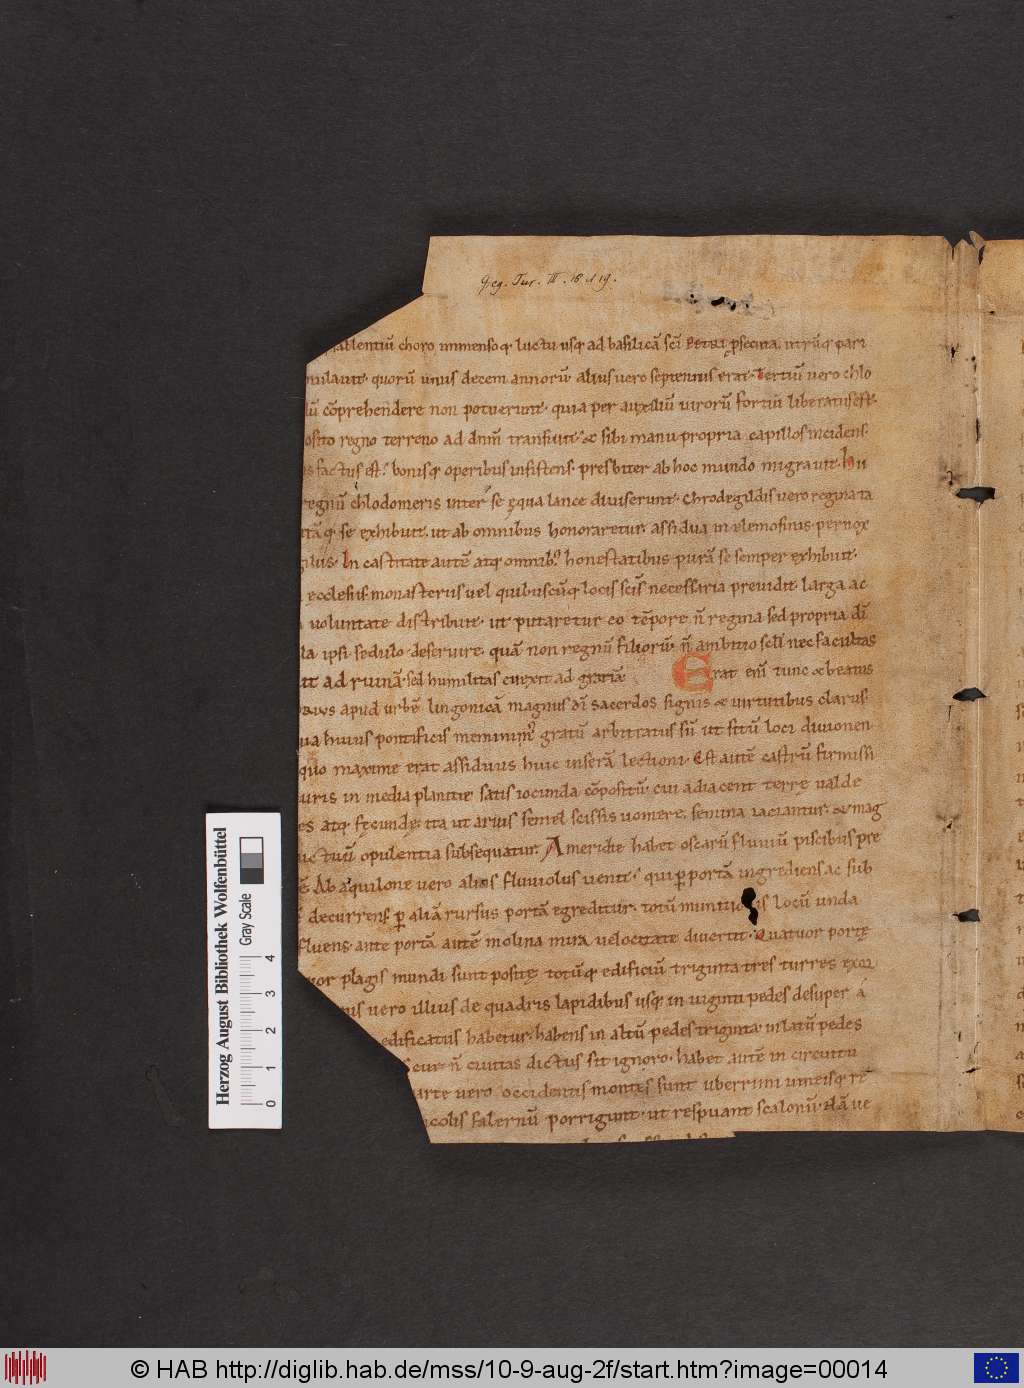 Greg. Tur. III. 18 et 19.
psallentiū choro immensoq; luctu usq; ad basilicā scī petri psecuta. utrūq; pari
mulauit. quorū unus decem annorū. alius uero septennis erat. Tertiū uero chlo
dū cōprehendere non potuerunt. quia per auxiliū uirorū fortiū liberatus est.
osito regno terreno ad dnm̄ transiuit. & sibi manu propria capillos incidens.
s factus est. bonisq; operibus insistens. presbiter ab hoc mundo migrauit. hii
regnū chlodomeris inter se ęqua lance diuiserunt. chrodegildis uero regina ta
tāq; se exhibuit. ut ab omnibus honoraretur. assidua in elemosinis pernox
giliis. In castitate autē atq; omnib; honestatibus purā se semper exhibuit.
ecclesiis monasteriis uel quibuscūq; locis scīs necessaria preuidit. larga ac
uoluntate distribuit. ut putaretur eo tēpore n̄ regina sed propria dī
la ipsi sedulo deseruire. quā non regnū filiorū. n̄ ambitio sclī nec facultas
it ad ruinā. sed humilitas euexit ad gratiā.
Erat enī tunc & beatus
rius apud urbē lingonicā magnus dī sacerdos signis & uirtutibus clarus.
uia huius pontificis meminim; gratū arbitratus sū ut sitū loci diuionen
quo maxime erat assiduus huic inserā lectioni. Est autē castrū firmissi
uris in media planitie satis iocunda cōpositū. cui adiacent terrę ualde
es atq; fęcundę. ita ut aruis semel scissis uomere. semina iaciantur. & mag
uctuū opulentia subsequatur. A meridie habet oscarū fluuiū piscibus pre
ē. Ab aquilone uero alius fluuiolus uenit. qui p portā ingrediens ac sub
decurrens p aliā rursus portā egreditur. totū munitionis locū unda
fluens. ante portā autē molina mira uelocitate diuertit. Quatuor portę
uor plagis mundi sunt positę. totūq; edificiū triginta tres turres exor
rus uero illius de quadris lapidibus usq; in uiginti pedes desuper a
edificatus habetur. habens in altū pedes triginta. in latū pedes
cur n̄ ciuitas dictus sit ignoro. habet autē in circuitu
arte uero occidentis montes sunt uberrimi uineisq; re
ncolis falernū porrigunt. ut respuant scalonū. Nā ve
Herzog August Bibliothek Wolfenbüttel
Gray Scale
0 1 2 3 4
© HAB http://diglib.hab.de/mss/10-9-aug-2f/start.htm?image=00014